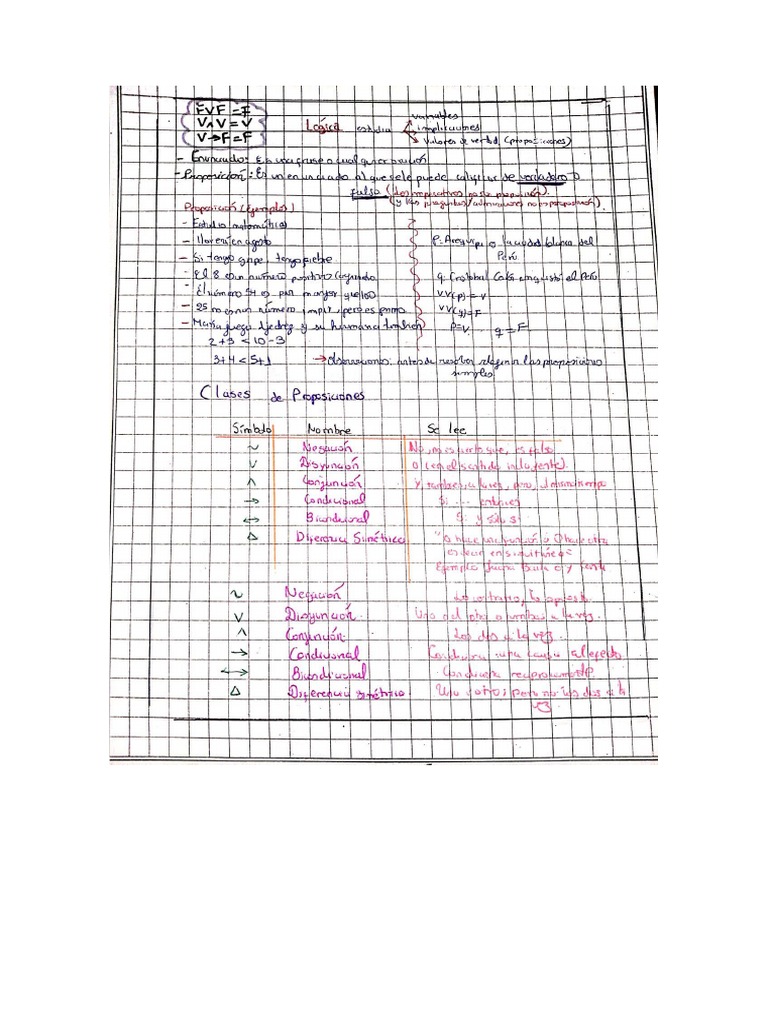 FVF = F
V∧V = V
V→F = F
variables
Lógica estudia implicaciones
valores de verdad (proposiciones)
- Enunciado: Es una frase o cualquier oración
- Proposición: Es un enunciado al que se le puede calificar de verdadero o
falso (Los imperativos no se proposición).
(y las preguntas/admiraciones no es proposición).
Proposición (Ejemplos)
- Estudio matemática
- Lloren en agosto
- Si tengo gripe, tengo fiebre
- El 8 es un número positivo
- El número 54 es par mayor que
- 25 no es un número impar, pero es primo
- María juega ajedrez y su hermana también
2 + 3 < 10 - 3
3+4 < 5+1
P: Arequipa la ciudad blanca del
Perú
q: Cristobal Colón conquistó el Perú
VV(p) = V
VV(q) = F
P=V. q = F
→ observaciones: antes de resolver las proposiciones
simples
Clases de Proposiciones
Símbolo Nombre Se lee
~ Negación No, no es cierto que, es falso
∨ Disyunción o (en el sentido incluyente).
∧ Conjunción y, también, a la vez, pero,
→ Condicional Si ... entonces
↔ Bicondicional Si y sólo si
Δ Diferencia Simétrica "o hace una función o
Ejemplo Juana baila o
~ Negación Lo contrario, lo opuesto.
∨ Disyunción Uno del otro o ambos a la vez.
∧ Conjunción Los dos a la vez.
→ Condicional Conduce una causa al efecto
↔ Bicondicional
Δ Diferencia simétrica Uno u otro; pero no los dos a la
vez